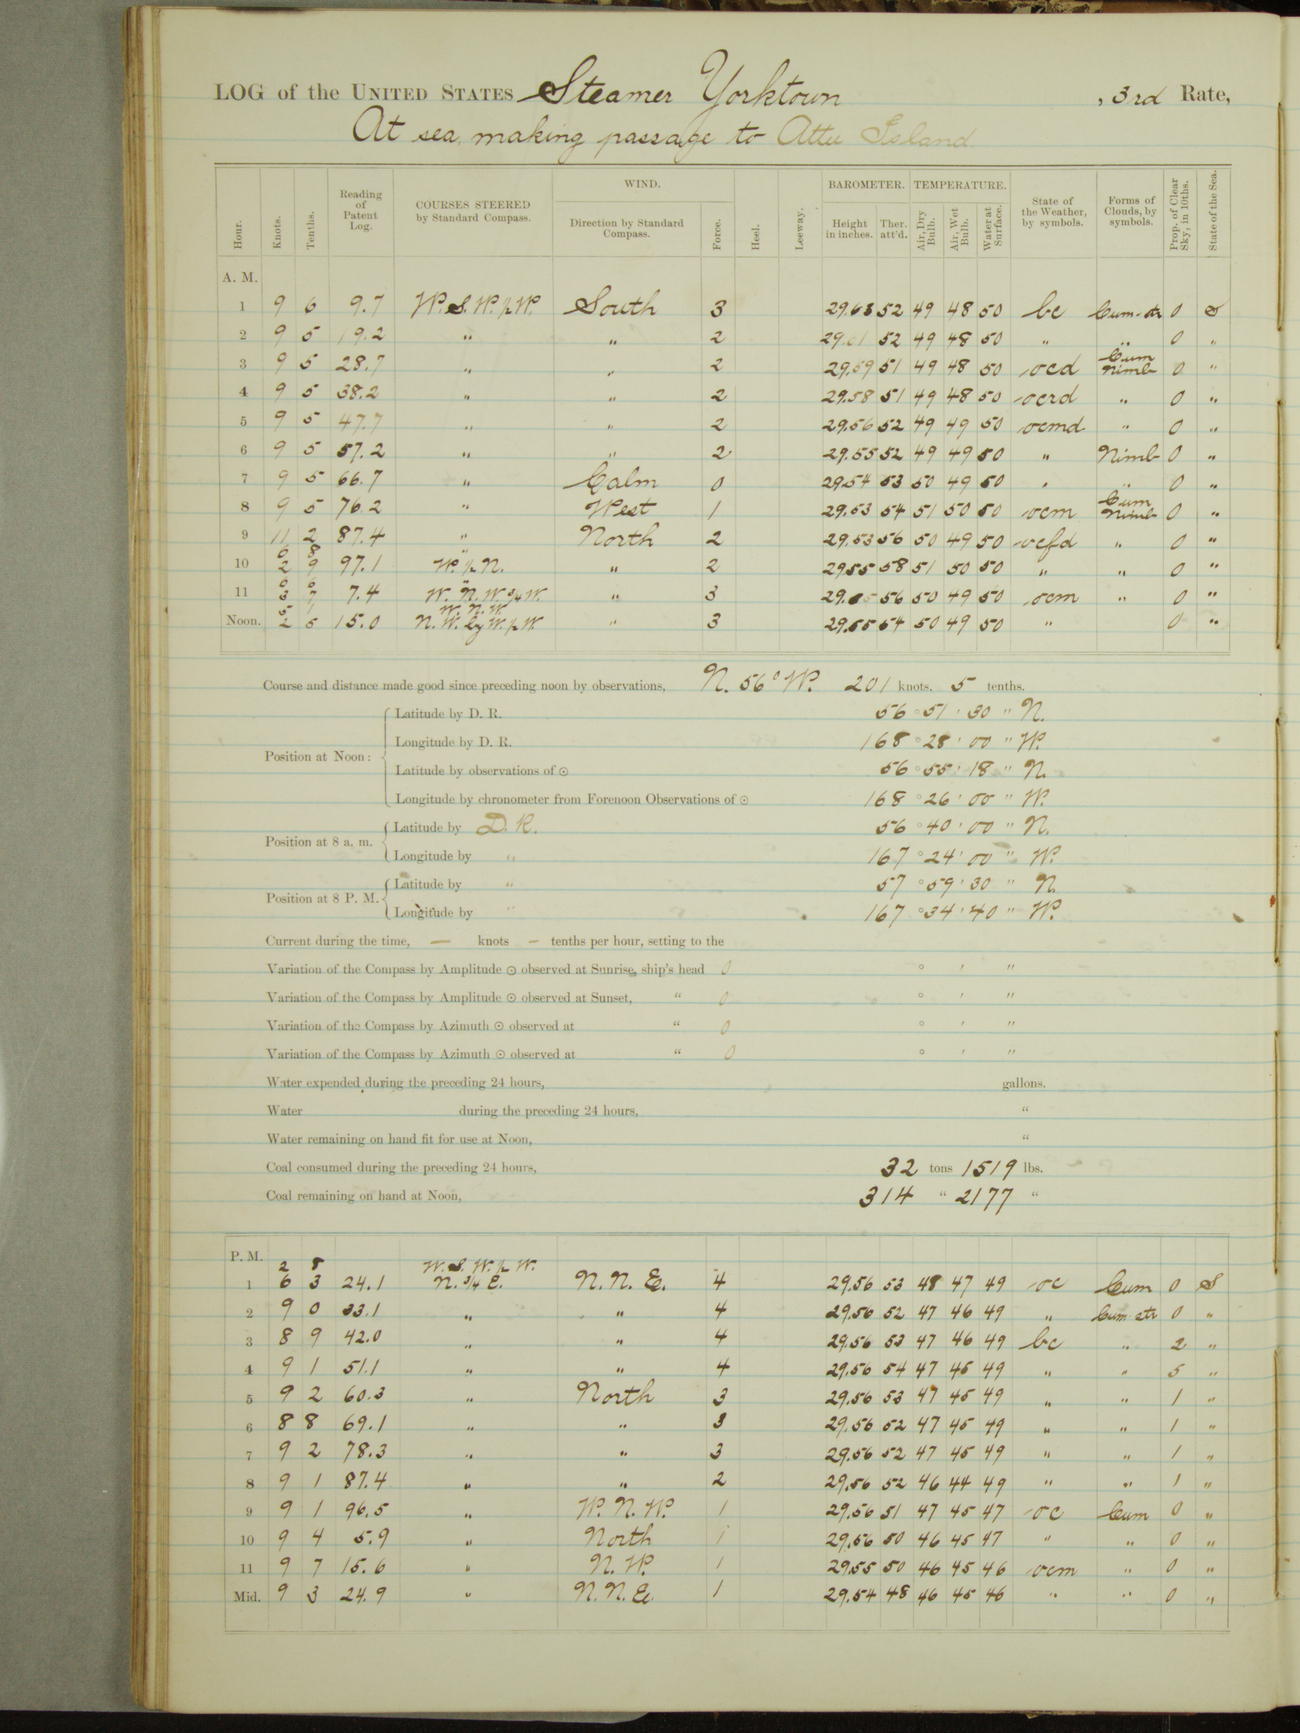 LOG of the UNITED STATES Steamer Yorktown , 3rd Rate,
At sea making passage to Attu Island
Hour. Knots. Tenths. Reading of Patent Log. COURSES STEERED by Standard Compass. WIND. Direction by Standard Compass. Force. Heel. Leeway. BAROMETER. Height in inches. Ther. att'd. TEMPERATURE. Air, Dry Bulb. Air, Wet Bulb. Water at Surface. State of the Weather, by symbols. Forms of Clouds, by symbols. Prop. of Clear Sky, in 10ths. State of the Sea.
A. M.
1 9 6 9.7 W.S.W.½W. South 3 29.63 52 49 48 50 bc Cum-str 0 S
2 9 5 19.2 " " 2 29.61 52 49 48 50 " " 0 "
3 9 5 28.7 " " 2 29.59 51 49 48 50 ocd Cum Nimb 0 "
4 9 5 38.2 " " 2 29.58 51 49 48 50 ocrd " 0 "
5 9 5 47.7 " " 2 29.56 52 49 49 50 ocmd " 0 "
6 9 5 57.2 " " 2 29.55 52 49 49 50 " Nimb 0 "
7 9 5 66.7 " Calm 0 29.54 53 50 49 50 " " 0 "
8 9 5 76.2 " West 1 29.53 54 51 50 50 ocm Cum Nimb 0 "
9 11 2 87.4 " North 2 29.53 56 50 49 50 ocfd " 0 "
6 8 "
10 2 9 97.1 W.½N. " 2 29.55 58 51 50 50 " " 0 "
6 6 "
11 3 7 7.4 W.N.W.¾W. " 3 29. 56 50 49 50 ocm " 0 "
5 1 W.N.W.
Noon. 2 5 15.0 N.W. by W.½W. " 3 29.55 54 50 49 50 " 0 "
Course and distance made good since preceding noon by observations, N. 56° W. 201 knots. 5 tenths.
Position at Noon: Latitude by D. R. 56 ° 51 ' 30 " N.
Longitude by D. R. 168 ° 28 ' 00 " W.
Latitude by observations of ☉ 56 ° 55 ' 18 " N.
Longitude by chronometer from Forenoon Observations of ☉ 168 ° 26 ' 00 " W.
Position at 8 a. m. Latitude by D. R. 56 ° 40 ' 00 " N.
Longitude by " 167 ° 24 ' 00 " W.
Position at 8 P. M. Latitude by " 57 ° 59 ' 30 " N.
Longitude by " 167 ° 34 ' 40 " W.
Current during the time, — knots — tenths per hour, setting to the
Variation of the Compass by Amplitude ☉ observed at Sunrise, ship's head 0 ° ' "
Variation of the Compass by Amplitude ☉ observed at Sunset, " 0 ° ' "
Variation of the Compass by Azimuth ☉ observed at " 0 ° ' "
Variation of the Compass by Azimuth ☉ observed at " 0 ° ' "
Water expended during the preceding 24 hours, gallons.
Water during the preceding 24 hours, "
Water remaining on hand fit for use at Noon, "
Coal consumed during the preceding 24 hours, 32 tons 1519 lbs.
Coal remaining on hand at Noon, 314 " 2177 "
P. M.
2 8 W.S.W.½W.
1 6 3 24.1 N.¾E. N.N.E. 4 29.56 53 48 47 49 oc Cum 0 S
2 9 0 33.1 " " 4 29.56 52 47 46 49 " Cum-str 0 "
3 8 9 42.0 " " 4 29.56 53 47 46 49 bc " 2 "
4 9 1 51.1 " " 4 29.56 54 47 45 49 " " 5 "
5 9 2 60.3 " North 3 29.56 53 47 45 49 " " 1 "
6 8 8 69.1 " " 3 29.56 52 47 45 49 " " 1 "
7 9 2 78.3 " " 3 29.56 52 47 45 49 " " 1 "
8 9 1 87.4 " " 2 29.56 52 46 44 49 " " 1 "
9 9 1 96.5 " W.N.W. 1 29.56 51 47 45 47 oc Cum 0 "
10 9 4 5.9 " North 1 29.56 50 46 45 47 " " 0 "
11 9 7 15.6 " N.W. 1 29.55 50 46 45 46 ocm " 0 "
Mid. 9 3 24.9 " N.N.E. 1 29.54 48 46 45 46 " " 0 "